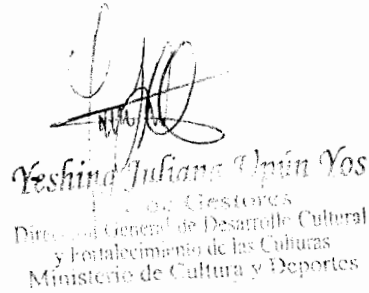 Yeshina Juliana Upún Yos
de Gestores
Dirección General de Desarrollo Cultural
y Fortalecimiento de las Culturas
Ministerio de Cultura y Deportes